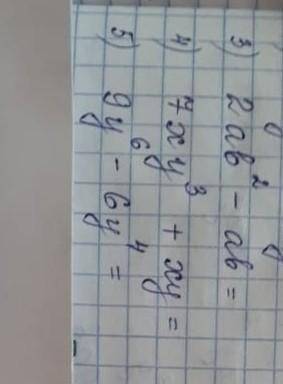 3) 2ab² - ab =
4) 7xy³ + xy =
5) 9y⁶ - 6y⁴ =